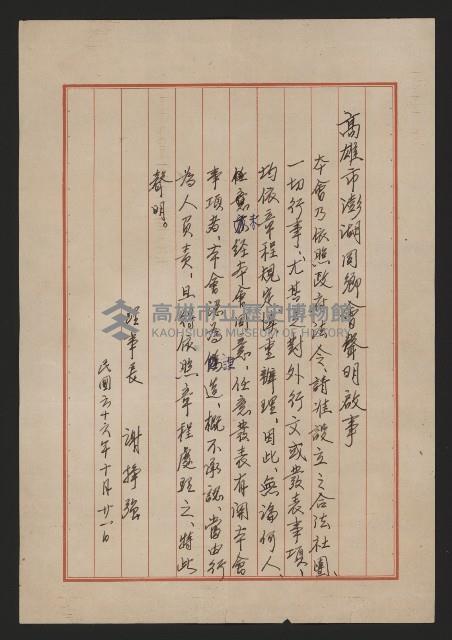 高雄市澎湖同鄉會聲明啟事
本會乃依照政府法令、請准設立之合法社團、
一切行事、尤其對外行文或發表事項、
均依章程規定慎重辦理、因此、無論何人、
任意未經本會同意、任意發表有關本會
事項者、本會認為偽造、概不承認、當由行
為人負責、且得依照章程處理之、特此
聲明。
理事長 謝掙強
民國六十六年十月廿一日
高雄市立歷史博物館
KAOHSIUNG MUSEUM OF HISTORY